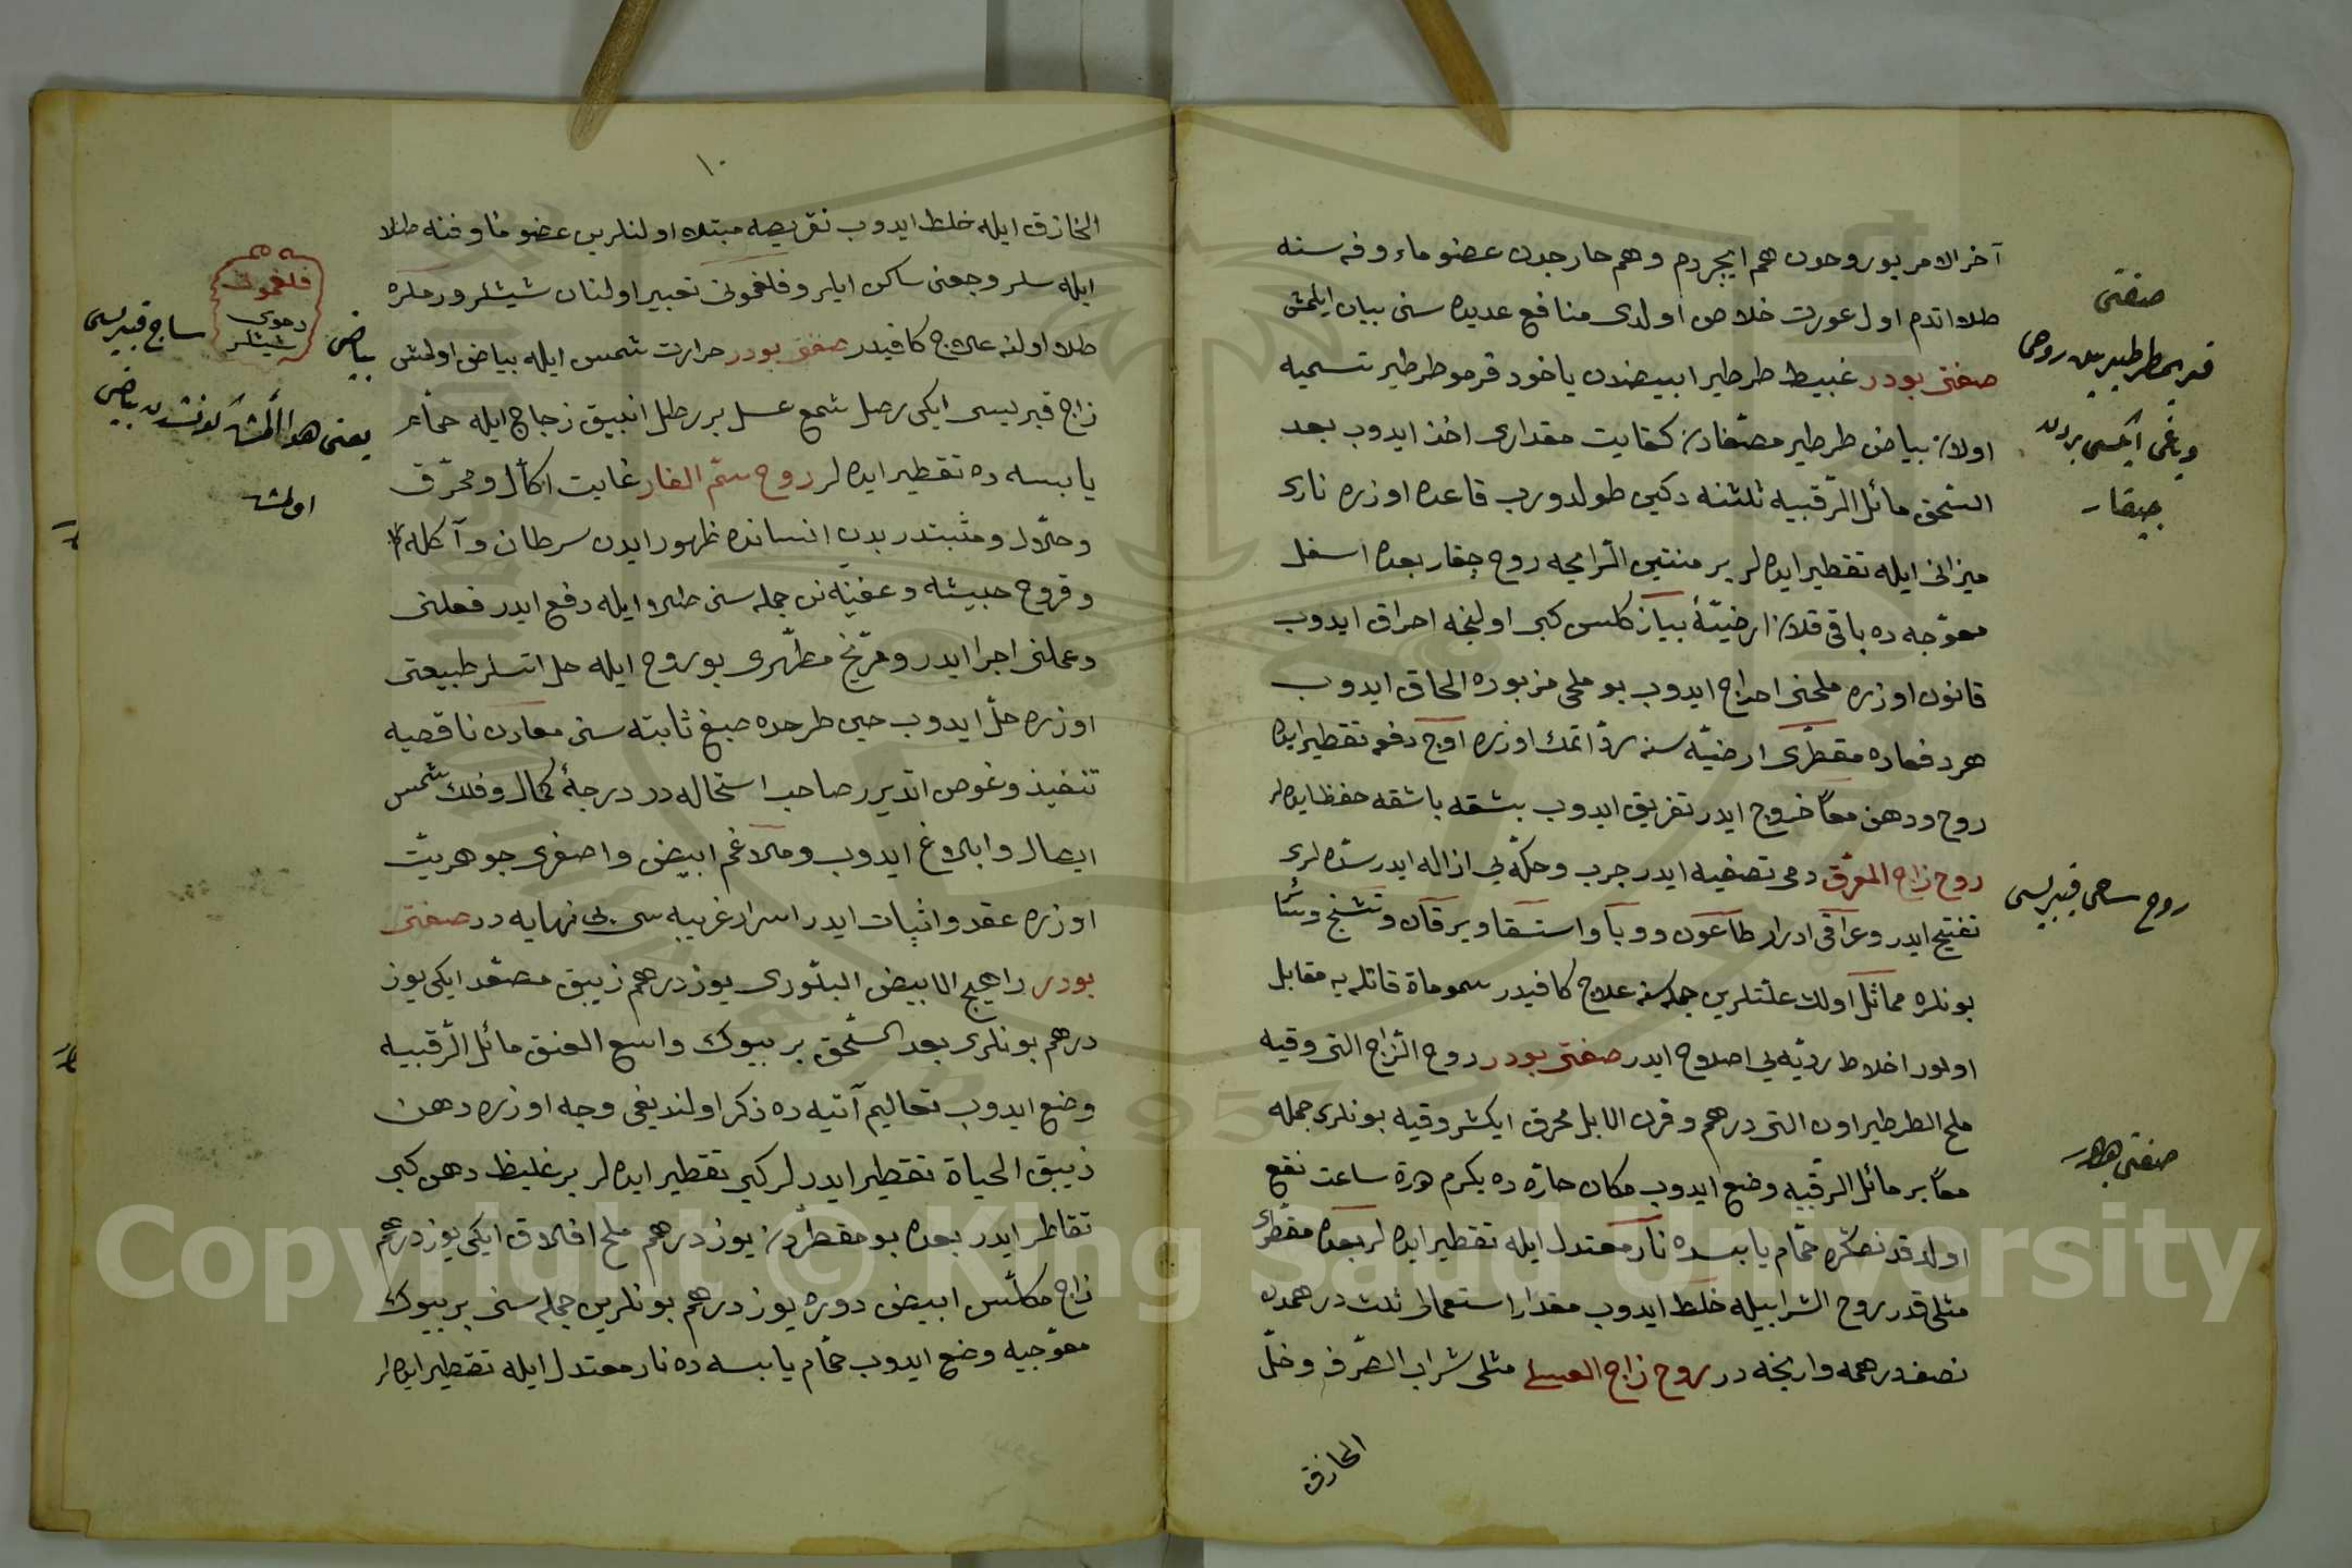 آخر الامر بو روحدن هم ایچردم و هم خارجدن عضو ماءوفه سنه
طلا اتدم اول عورت خلاص اولدی منافع عدیده سنی بیان ایلمش
صفتی بودر غبیط طرطیر ابیضدن یاخود قرمو طرطیر تسمیه
اولان بیاض طرطیر مصفادن کفایت مقداری اخذ ایدوب بعد
السّحق مائل الرّقبیه ثلثنه دکین طولدورب قاعده اوزره ناری
میزانی ایله تقطیر ایده لر بر منتین الرّایحه روح چقار بعده اسفل
معوّجه ده باقی قلان ارضیّۀ بیاز کلس کبی اولنجه احراق ایدوب
قانون اوزره ملحنی اخراج ایدوب بو ملحی مزبوره الحاق ایدوب
هر دفعاده مقطّری ارضیّه سنه ردّ اتمك اوزره اوچ دفعه تقطیر ایده
روح و دهن معاً خروج ایدر تفریق ایدوب بشقه باشقه حفظ ایده لر
روح زاج المعرّق دمی تصفیه ایدر جرب و حکّه یی ازاله ایدر سدّه لری
تفتیح ایدر و عراقی ادرار طاعون و وبا و استسقا و یرقان و تشنّج و سائر
بونلره مماثل اولان علّتلرین جمله سنه علاج کافیدر سموماة قاتله یه مقابل
اولور اخلاط ردیّه یی اصلاح ایدر صفتی بودر روح الزّاج التی وقیه
ملح الطرطیر اون التی درهم و قرن الابل محرق ایکشر وقیه بونلری جمله
معاً بر مائل الرقبیه وضع ایدوب مکان حارّه ده یکرم درة ساعت نقع
اولندقدنصکره حمّام یابسده نار معتدل ایله تقطیر ایده لر بعده مقطری
مثلی قدر روح الشرابیله خلط ایدوب مقدار استعمالی ثلث درهمدن
نصف درهمه وارنجه در روح زاج العسلی مثلی شراب الصّرف و خلّ
الخازق
صفتی
قریم طرطیرینك روحی
و یاغی ایکسی بردن
چیقار
روح ساجی قبریسی
صفتی بودر
١٠
الخازق ایله خلط ایدوب نقریصه مبتلا اولنلرین عضو ماوفنه طلا
ایله سلر وجعنی ساکن ایلر و فلغمونی تعبیر اولنان شیشلر و رملره
طلا اولنه علاج کافیدر صفتی بودر حرارت شمس ایله بیاض اولمش
زاج قبریسی ایکی رطل شمع عسل بر رطل انبیق زجاج ایله حمّام
یابسه ده تقطیر ایده لر روح سمّ الفار غایت اکّال و محرّق
و حلّال و مثبتدر بدن انسانده ظهور ایدن سرطان و آکله
و قروح خبیثه و عفنیّه نن جمله سنی طلا ایله دفع ایدر فعلنی
و عملنی اجرا ایدر و مرّیخ مطهّری بو روح ایله حل اتسلر طبیعتی
اوزره حلّ ایدوب حین طرحده صبغ ثابته سنی معادن ناقصیه
تنفیذ و غوص اتدیرر صاحب استحاله در درجۀ کمال و فلك شمس
ایصال و ابلاغ ایدوب و ملاغم ابیض و اصفری جوهریت
اوزره عقد و اثبات ایدر اسرار غریبه سی بی نهایه در صفتی
بودر راهیج الابیض البلّوری یوز درهم زیبق مصعّد ایکی یوز
درهم بونلری بعد السّحق بر بیوك واسع العنق مائل الرّقبیه
وضع ایدوب تعالیم آتیه ده ذکر اولندیغی وجه اوزره دهن
زیبق الحیاة تقطیر ایدر لر کبی تقطیر ایده لر بر غلیظ دهن کبی
تقاطر ایدر بعده بو مقطّردن یوز درهم ملح افلاق ایکی یوز درهم
زاج مکلّس ابیض دوره یوز درهم بونلرین جمله سنی بر بیوك
معوّجیه وضع ایدوب حمّام یابسه ده نار معتدل ایله تقطیر ایده لر
فلغمونی
دموی
شیشلر
بیاض ساج قبریسی
یعنی هوا المش کونشدن بیاض
اولمش